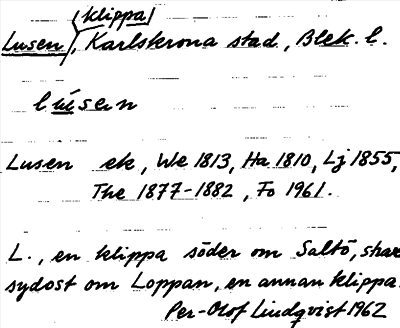 (klippa)
Lusen, Karlskrona stad, Blek. l.
lúsen
Lusen ek, We 1813, Ha 1810, Lj 1855,
The 1877-1882, Fo 1961.
L., en klippa söder om Saltö, strax
sydost om Loppan, en annan klippa.
Per-Olof Lindqvist 1962